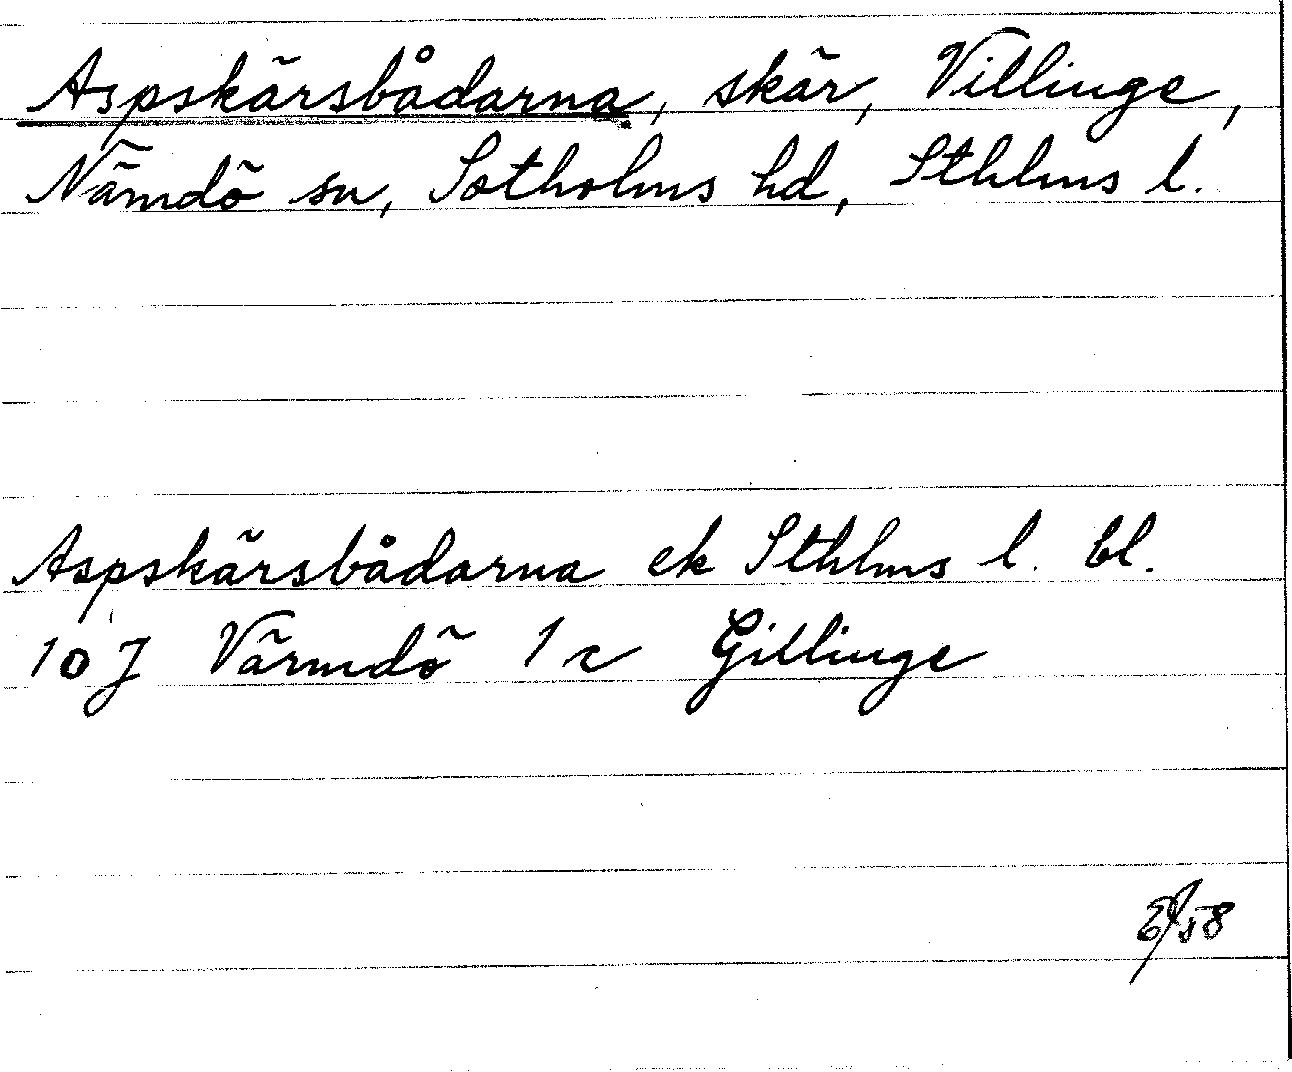 Aspskärsbådarna, skär, Villinge,
Nämdö sn, Sotholms hd, Sthlms l.
Aspskärsbådarna ek Sthlms l. bl.
10J Värmdö 1c Gillinge
58